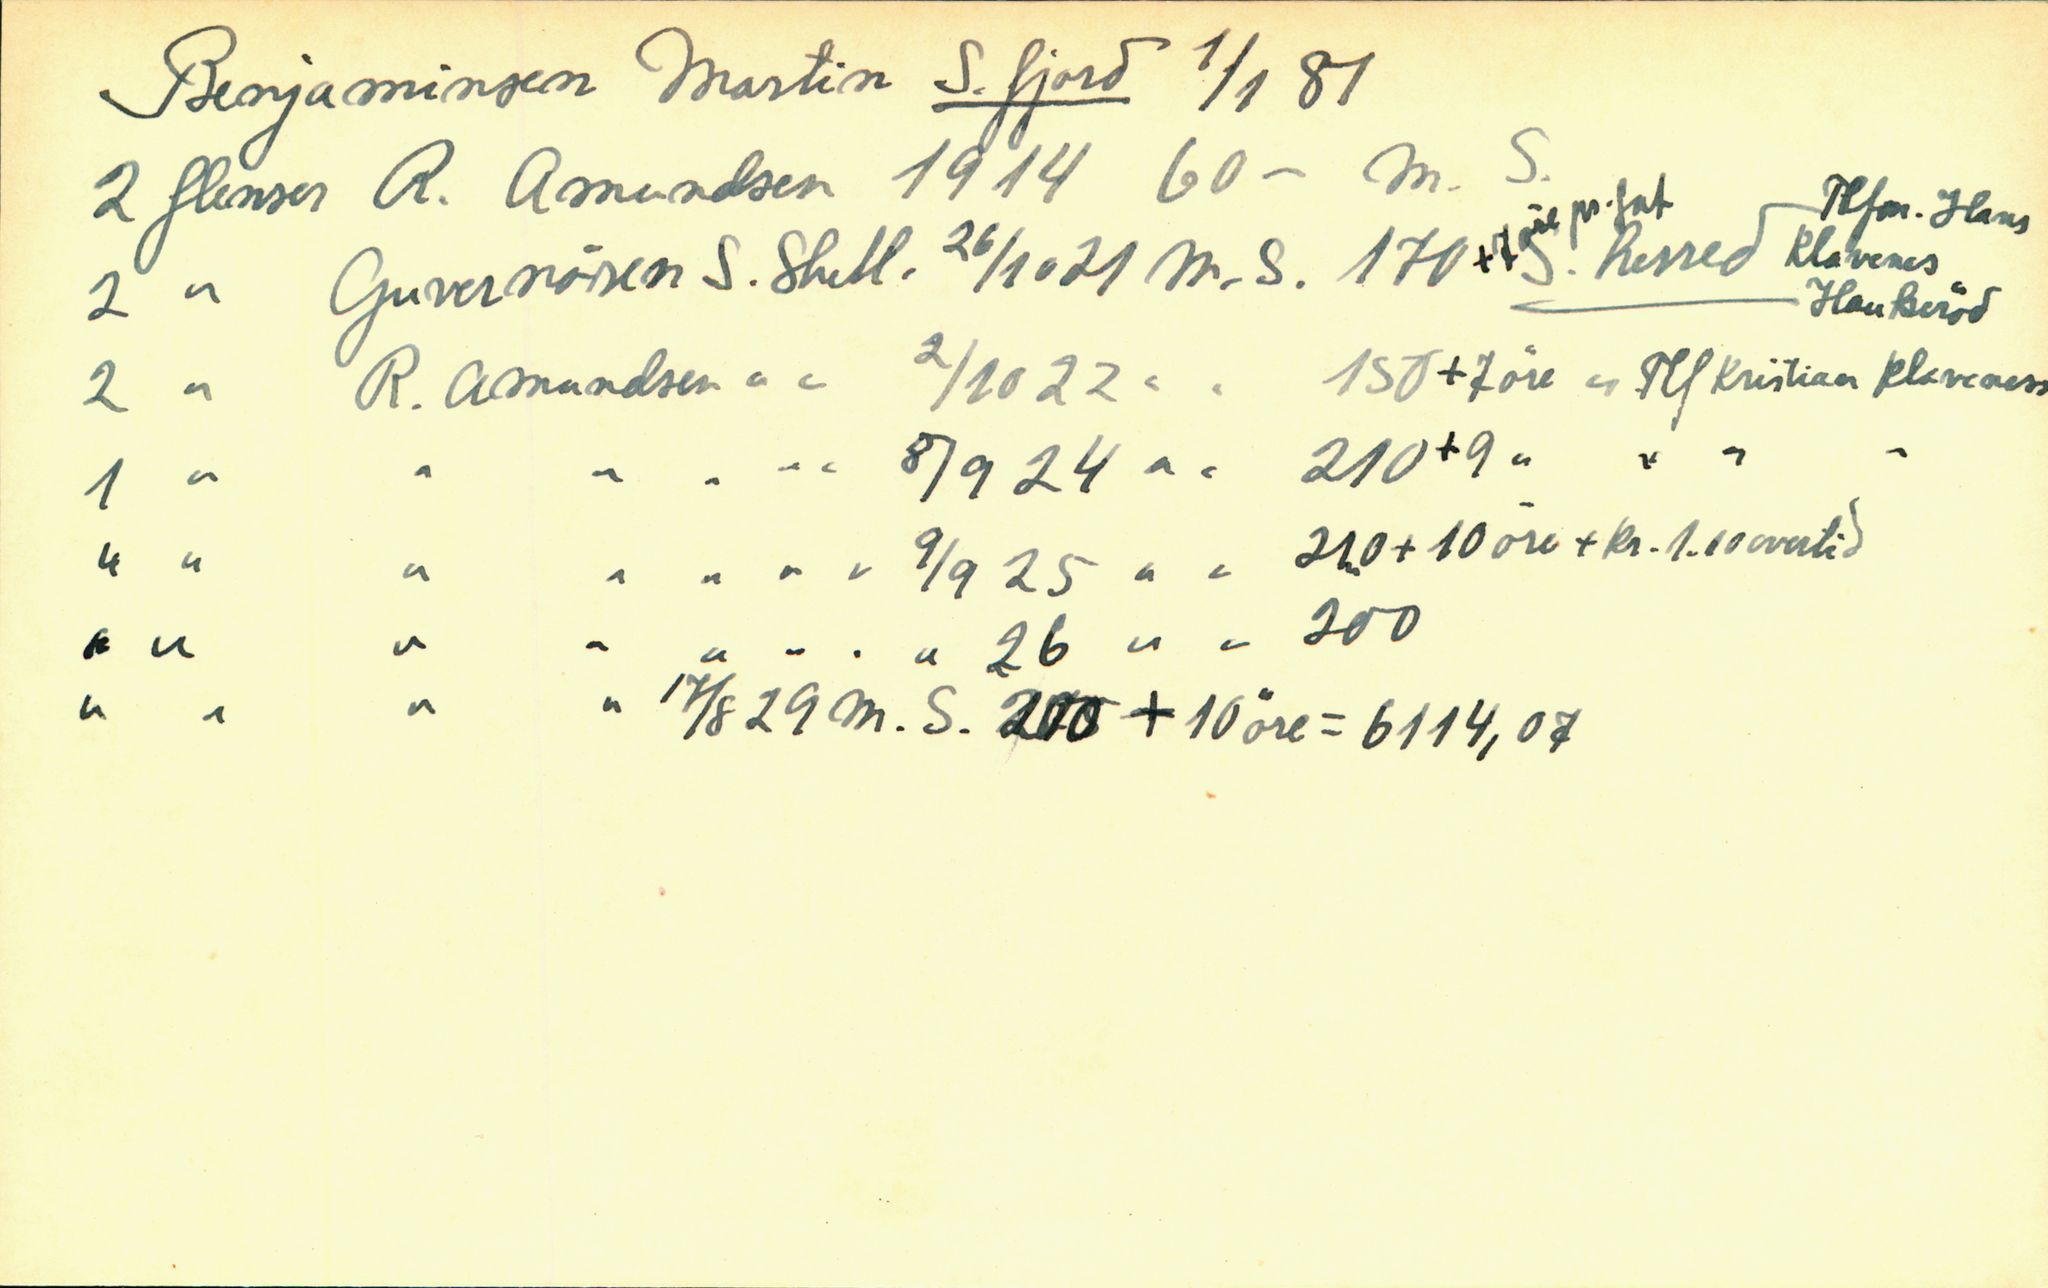 Benjaminsen Martin S. fjord 1/1 81
2 flenser R. Amundsen 1914 60 - M. S.
2 " Guvernören S. Shetl. 26/10 21 M. S. 170 + 7 öre pr. fat S. herred Tlf nr. Hans Klavenes Haukeröd
2 " R. Amundsen " " 2/10 22 " " 150 + 7 öre " Tlf Kristian Klaveness
1 " " " " " " 8/9 24 " " 210 + 9 " " " "
" " " " " " " 9/9 25 " " 210 + 10 öre + kr. 1.10 overtid
" " " " " " " " 26 " " 200
" " " " 17/8 29 M. S. + 10 öre = 6114,07